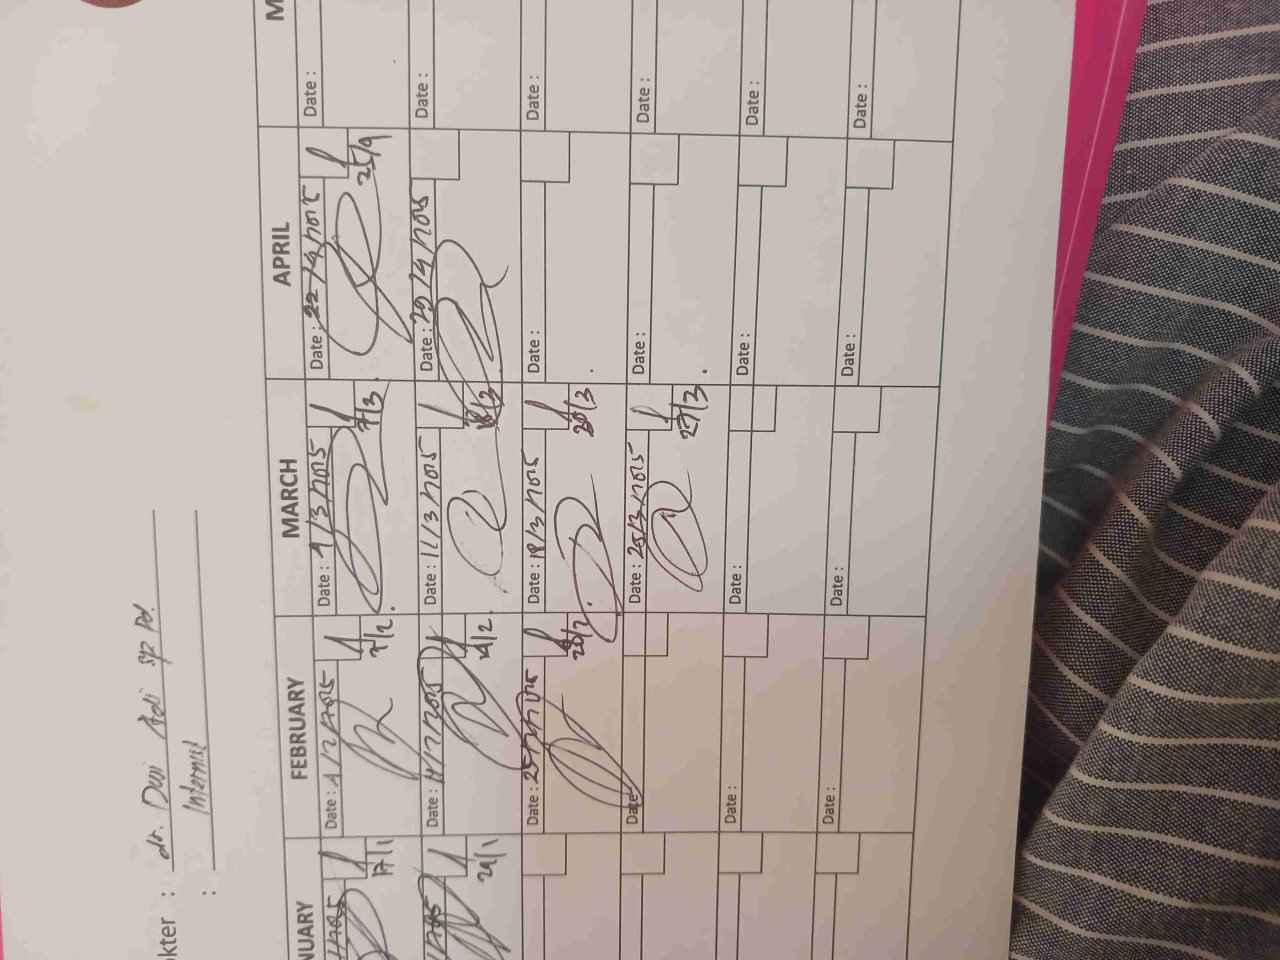 kter : dr. Dwi Adi Sp Pd.
: Internist
NUARY
FEBRUARY
MARCH
APRIL
M
17/1
Date : 4/2/2025
7/2
Date : 4/3/2025
7/3
Date : 22/4/2025
25/4
Date :
24/1
Date : 11/2/2025
14/2
Date : 11/3/2025
Date : 29/4/2025
Date :
Date : 25/2/2025
Date : 18/3/2025
20/3
Date :
Date :
Date
Date : 25/3/2025
27/3
Date :
Date :
Date :
Date :
Date :
Date :
Date :
Date :
Date :
Date :